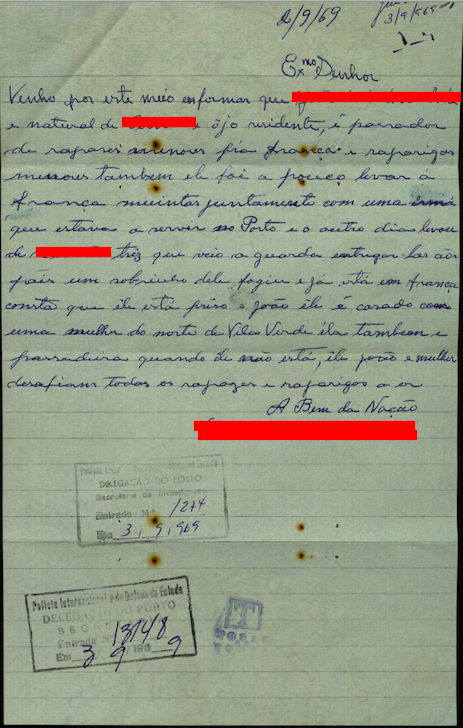 2/9/69
3/9/969
Exmo Senhor
Venho por este meio enformar que
e natural de e ôjo residente, é passador
de rapazes menores pra França e raparigas
menores tambem ele foi a pouco levar a
França meninas juntamente com uma irmã
que estava a servir no Porto e o outro dia levou
de três que veio a guarda entregar las aos
pais um sobrinho dele fogiu e já está em França
consta que ele está prêso e João ele é casado com
uma mulher do norte de Vila Verde ila tambem e
passadeira quando ele não está, ele joão e mulher
desafiam todos os rapazes e raparigas a ir
A Bem da Nação
DELEGAÇÃO DO PORTO
Secretaria de
Entrada Nº 1274
Em 3 9 1969
Policia Internacional e de Defesa do Estado
DELEGAÇÃO DO PORTO
Entrada N 13148
Em 3 9 196 9
T